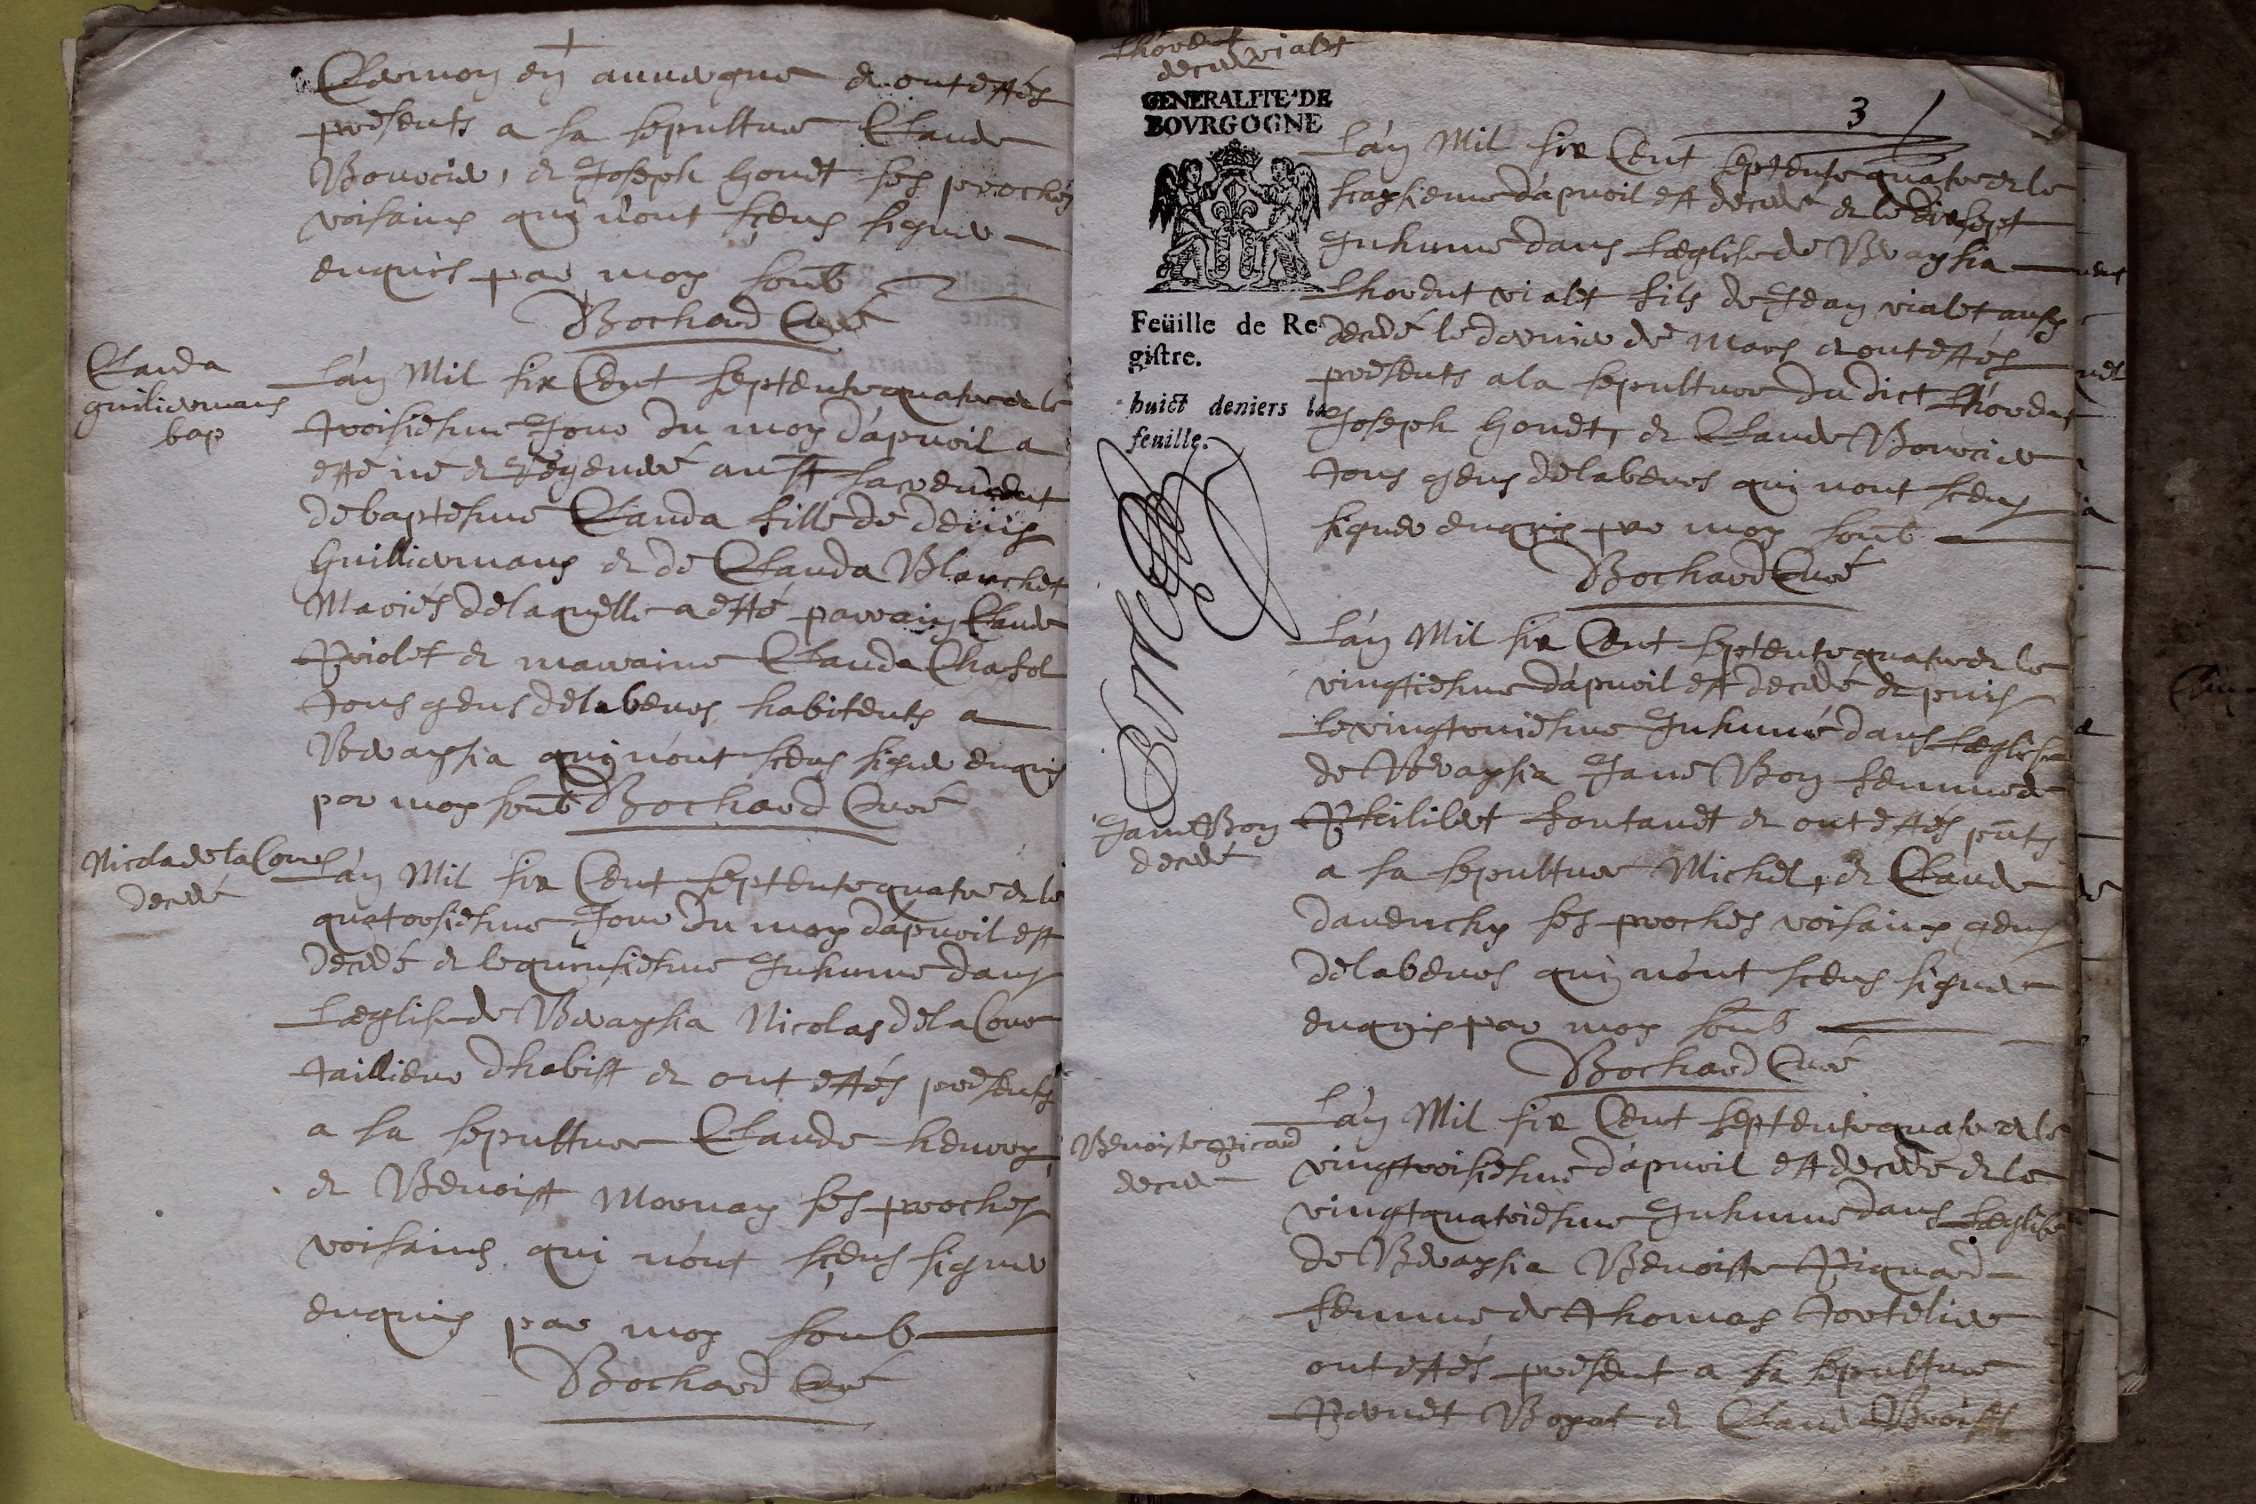 Clermon en auvergne et ont estés
presents a sa sepulture Claude
et Joseph houet ses proches
voisains qui n'ont sceus signer
enquis par moy soub
Bochard Curé
Clauda
guiliermans
bap
L'an Mil six Cent septente quatre et le
troisiesme Jour du moy d'apvril a
esté né et au St sacrement
de baptesme Clauda fille de denis
Guilliermans et de Clauda Blanchet
Mariés de laquelle a esté parrain Claude
Priolet et marraine Clauda Chasol
tous gens de labeurs habitents a
Vervaysia qui n'ont sceus signer enquis
par moy soub Bochard Curé
Nicola de la Cour
decedé
L'an Mil six Cent septente quatre et le
quatorsiesme Jour du moy d'apvril est
decedé et le quinsiesme Inhumé dans
L'eglise de Vervaysia Nicolas de la Cour
tailleur d'habist et ont estés presents
a sa sepulture Claude henry
et Benoist Mornay ses proches
voisains qui n'ont sceus signer
enquis par moy soub
Bochard Curé
thorent vialet
decedé
GENERALITE DE
BOVRGOGNE
3
Feüille de Re
gistre.
huict deniers la
feuille.
L'an Mil six Cent septente quatre et le
d'apvril est decedé et le diesept
Inhumé dans L'eglise de Vervaysia
thorent vialet fils de Jean vialet aussy
decedé le dernier de Mars et ont estés
presents a la sepulture du dict thorent
Joseph houet, et Claude
tous gens de labeurs qui n'ont sceus
signer enquis par moy soub
Bochard Curé
Jane Bon
decedé
L'an Mil six Cent septente quatre et le
vingtiesme d'apvril est decedé et puis
le vingtuniesme Inhumé dans L'eglise
de Vervaysia Jane Bon femme de
Philibert fontanet et ont estés pnts
a sa sepulture Michel, et Claude
davenchy ses proches voisains gens
de labeurs qui n'ont sceus signer
enquis par moy soub
Bochard Curé
Benoiste Picard
decedé
L'an Mil six Cent septente quatre et le
vingtroisiesme d'apvril est decedé et le
vingtquatriesme Inhumé dans L'eglise
de Vervaysia Benoiste Piquard
femme de Thomas tortelier
ont estés present a sa sepulture
Pernet Boyat et Claude